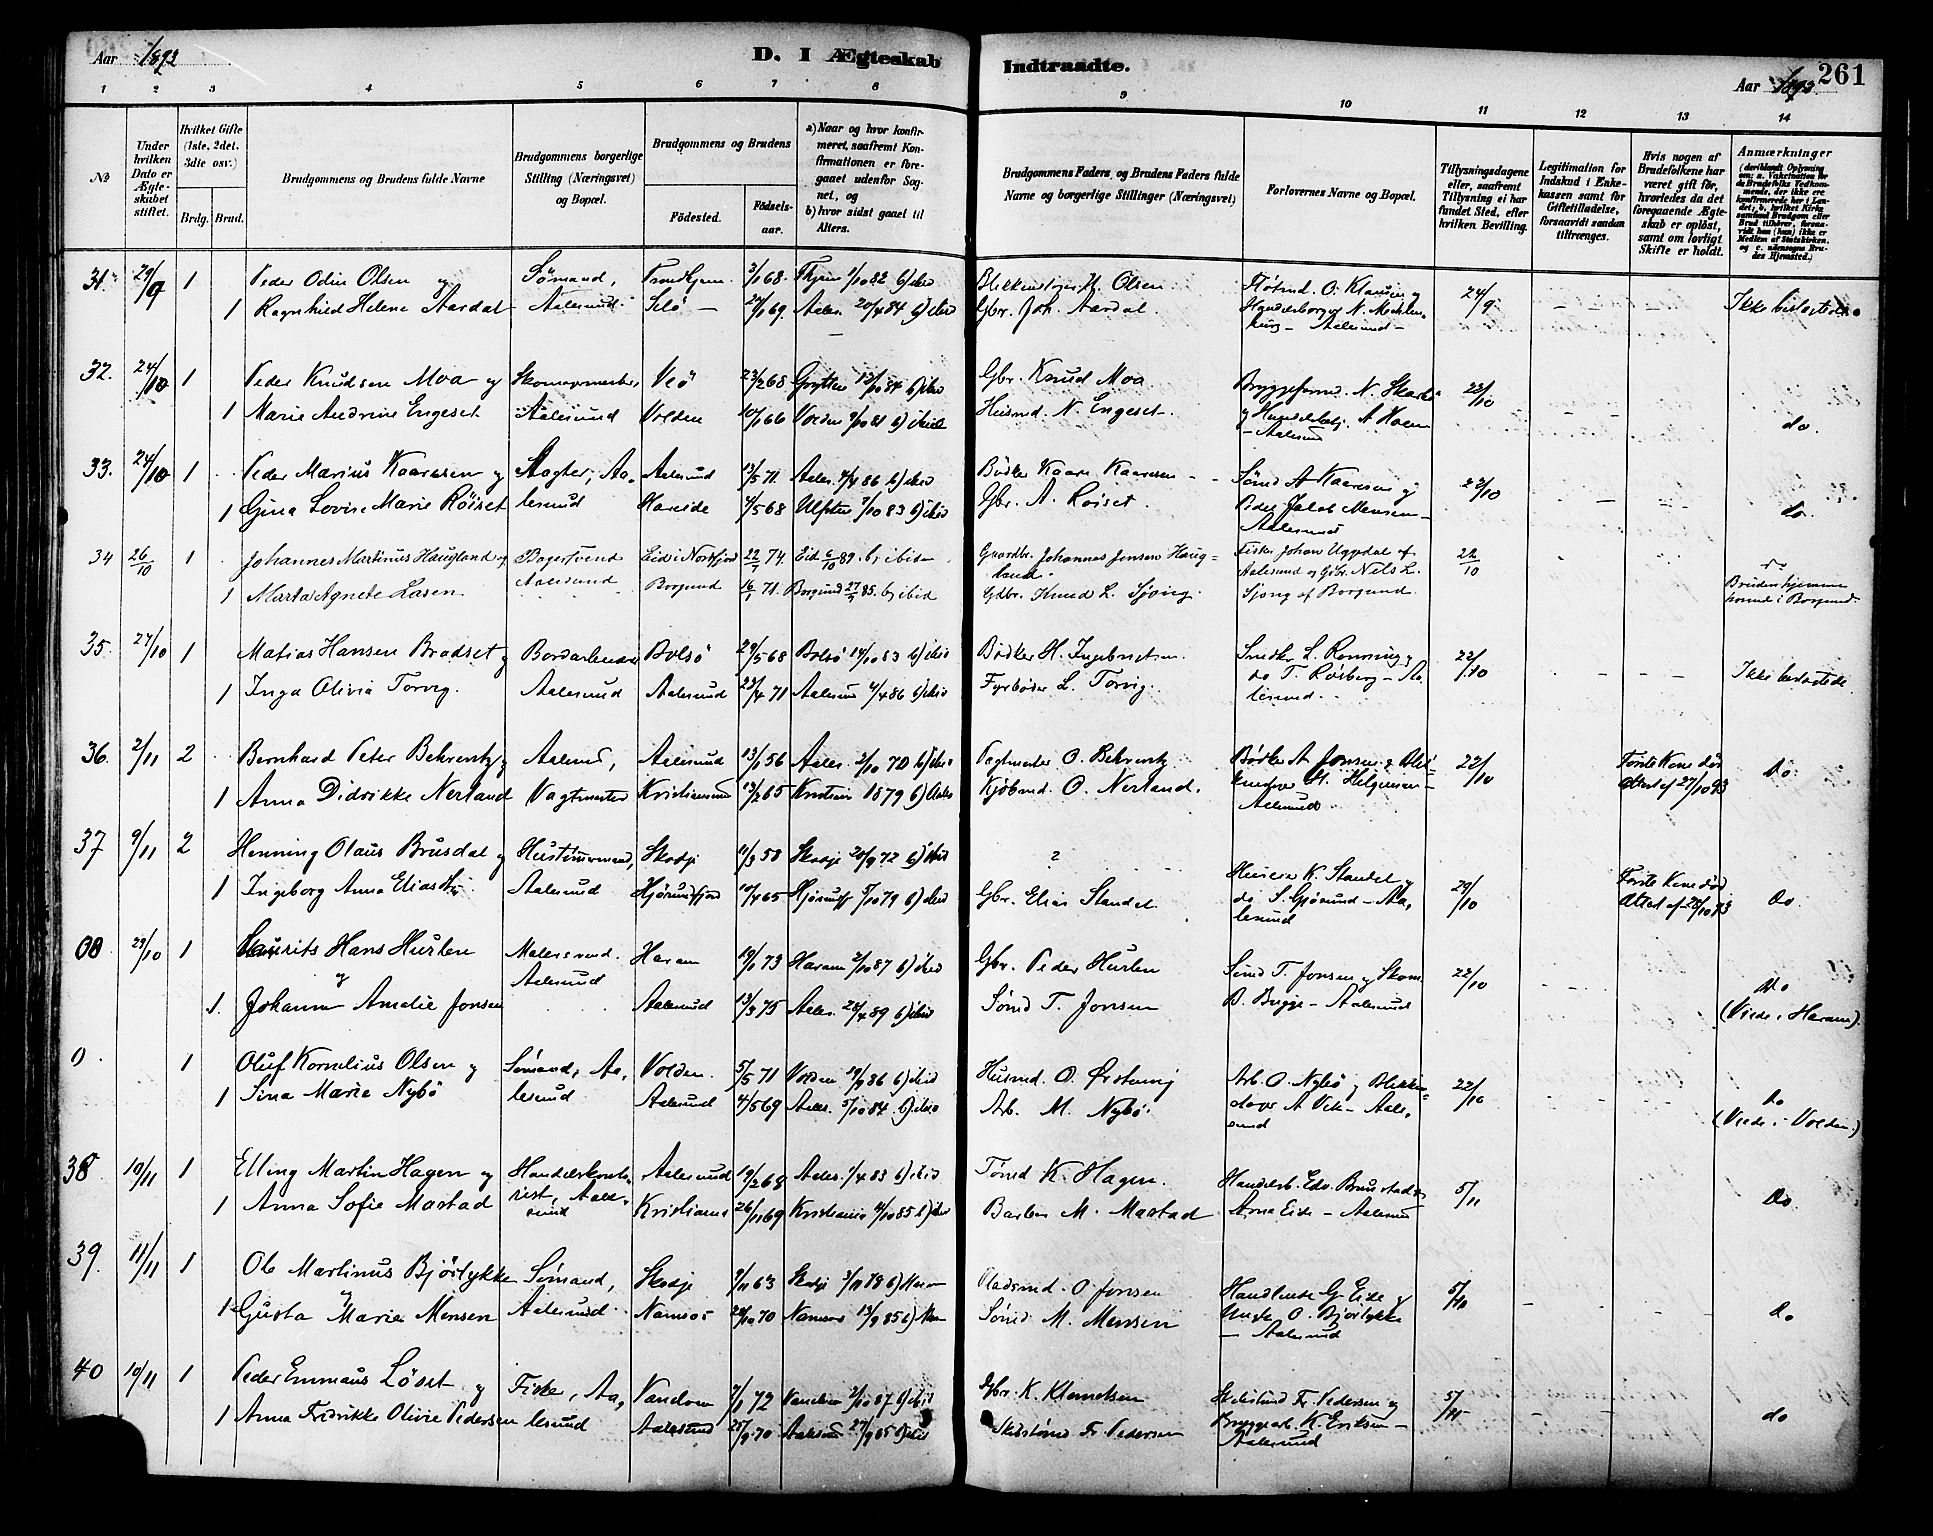 Aar 1893
D. I Ægteskab
Indtraadte.
Aar 1893.
261
1 2 3 4 5 6 7 8 9 10 11 12 13 14
No
Under hvilken Dato er Ægteskabet stiftet.
Hvilket Gifte (1ste, 2det, 3die osv.)
Brdg. Brud.
Brudgommens og Brudens fulde Navne
Brudgommens borgerlige Stilling (Næringsvei) og Bopæl.
Brudgommens og Brudens
Födested.
Födselsaar.
a) Naar og hvor konfirmeret, saafremt Konfirmationen er foregaaet udenfor Sognet, og
b) hvor sidst gaaet til Alters.
Brudgommens Faders, og Brudens Faders fulde Navne og borgerlige Stillinger (Næringsvei)
Forlovernes Navne og Bopæl.
Tillysningsdagene eller, saafremt Tillysning ei har fundet Sted, efter hvilken Bevilling.
Legitimation for Indskud i Enkekassen samt for Giftetilladelse, forsaavidt saadan tiltrænges.
Hvis nogen af Brudefolkene har været gift för, hvorledes da det foregaaende Ægteskab er oplöst, samt om lovligt Skifte er holdt.
Anmærkninger
31. 29/9 1 Peder Odin Olsen og Sømand, Trondhjem 3/1 68. 1/10 82 b) ibid H. Olsen O. Klausen og 24/9
1 Ragnhild Helene Aardal Aalesund 27/1 69. Aales. 20/4 84 b) ibid Gbr. Joh. Aardal. Aalesund Ikke beslægtede
32. 24/10 1 Peder Knudsen Moa og Skomagermester, Veö 23/2 68 Grytten 13/10 84 b) ibid Gbr. Knud Moa 22/10
1 Marie Andrine Engeset Aalesund Volden 10/1 66 Volden 9/10 81 b) ibid Husmd. N. Engeset. Aalesund do.
33. 24/10 1 Peder Marius Kaaresen og Slagter, Aa- Aalesund 13/5 71. Aales. 4/4 86 b) ibid Bödker Kaare Kaaresen Sömd A Kaaresen og 22/10
1 Gina Lovise Marie Röiset lesund Hareide 4/5 68 Ulfsten 7/10 83 b) ibid Gbr. A. Röiset. Peder Jakob Monsen Aalesund do.
34 26/10 1 Johannes Martinus Haugland og Bagersvend Eid i Nordfjord 22/7 74. Eid 6/10 89. b) ibidem Gaardbr. Johannes Jonsen Haugland. Fisker Johan Uggedal af 22/10
1 Marta Agnete Lasen Aalesund Borgund 16/1 71. Borgund 27/9 85. b) ibid Gdbr. Knud L. Sjöng. Aalesund og Gbr. Niels L. Sjong af Borgund. Bruden hjemmehörende i Borgund.
35. 27/10 1 Matias Hansen Bradset og Bordarbeider Bolsö 29/5 68 Bolsö 14/10 83 b) ibid Bödker H. Ingebrigtsen. Snedker L. Rønning og 22/10
1 Inga Olivia Torvig. Aalesund Aalesund 23/4 71 Aalesund 4/4 86 b) ibid Fyrböder L. Torvig. do T. Rösberg - Aalesund. Ikke beslægtede.
36. 2/11 2 Bernhard Peter Behrentz og Aalesund, Aalesund 13/1 56 Aales. 2/10 70 b) ibid Vagtmester O. Behrentz Bödker A Jonsen 22/10 Förste Kone död
1 Anna Didrikke Nerland Vagtmester Kristiansund 13/2 65 Kristian 1879 b) Aales Kjöbmd. O. Nerland. H. Helgesen Aalesund. Attest af 27/10 93 do
37 9/11 2 Henning Olaus Brusdal og Hustömmermand, Skodje 11/3 58 Skodje 20/9 72 b) ibid ? K. Standal og 29/10 Förste Kone död
1 Ingeborg Anna Eliasdtr. Aalesund Hjörundfjord 10/4 65 Hjörundf 5/10 79 b) ibid Gbr. Elias Standal. do S. Gjösund - Aalesund Attest af 28/10 93 Do
00 29/10 1 Laurits Hans Hurlen Malersvend. Haram 19/1 73 Haram 2/10 87 b) ibid Gbr. Peder Hurlen Sömd T. Jonsen og Skom. 22/10
og Aalesund
1. Johanne Amalie Jonsen Aalesund 13/3 75 Aales. 28/4 89 b) ibid Sömd T. Jonsen B. Bugge - Aalesund do (Viede i Haram).
0 1 Oluf Kornelius Olsen og Sømand, Aa- Volden. 5/5 71 Volden 19/9 86 b) ibid Husmd. O. Ørstenvig Arb. O. Nybö og Blikken- 22/10
1 Sina Marie Nybö lesund Aalesund 4/5 69 Aales. 5/10 84. b) ibid Arb. M. Nybö. slager A Vik - Aalesund do (Viede i Volden)
38 10/11 1 Elling Martin Hagen og Handelskontorist, Aalesund Aalesund 19/2 68 Aales. 1/4 83 b) ibid Tømd K. Hagen. Handelsb. Edv. Brustad og 5/11
1 Anna Sofie Mastad Kristiania 26/11 69 Kristiania 4/10 85 b) ibid Barber M. Mastad Arna Eide - Aalesund Do
39. 11/11 1 Ole Martinus Björlykke Sømand, Skodje 9/11 63 Skodje 3/11 78 b) O. Jonsen Handlende G. Eide og 5/10
og
1 Gusta Marie Monsen Aalesund Namsos 28/10 70 Namsos 13/9 85 b) Sømd M. Monsen O. Björlykke Aalesund do
40 10/11 1 Peder Emmaus Löset og Fisker, Aa- Vanelven 7/1 72 Vanelven 2/10 87 b) ibid Gbr. K. Klemetsen Fr. Pedersen og 5/11
1 Anna Fredrikke Olivie Pedersen lesund Aalesund 25/9 70 Aalesund 27/9 85 b) ibid Fr. Pedersen Bryggearb. K. Eriksen Aalesund do